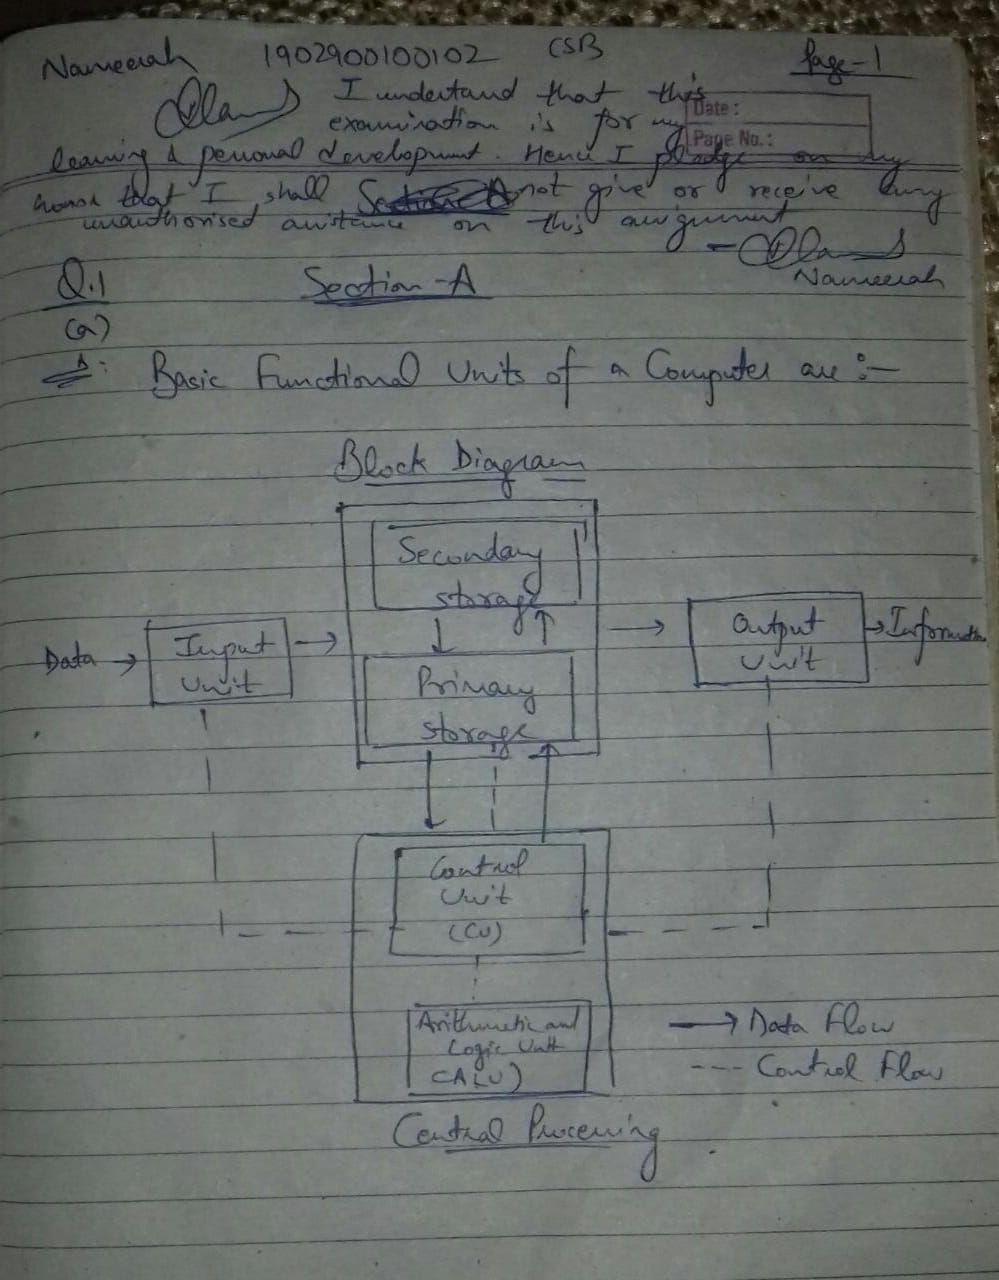 Nameerah 1902900100102 CSB Page-1
I understand that this
examination is for my
Date :
Page No. :
learning & personal development. Hence I pledge on my
honor that I shall not give or receive any
unauthorised assistance on this assignment
Nameerah
Q.1 Section-A
(a)
Basic Functional Units of a Computer are :-
Block Diagram
Secondary
storage
Data Input
Unit
Output
Unit
Information
Primary
storage
Control
Unit
(CU)
Arithmetic and
Logic Unit
(ALU)
Data Flow
Control Flow
Central Processing